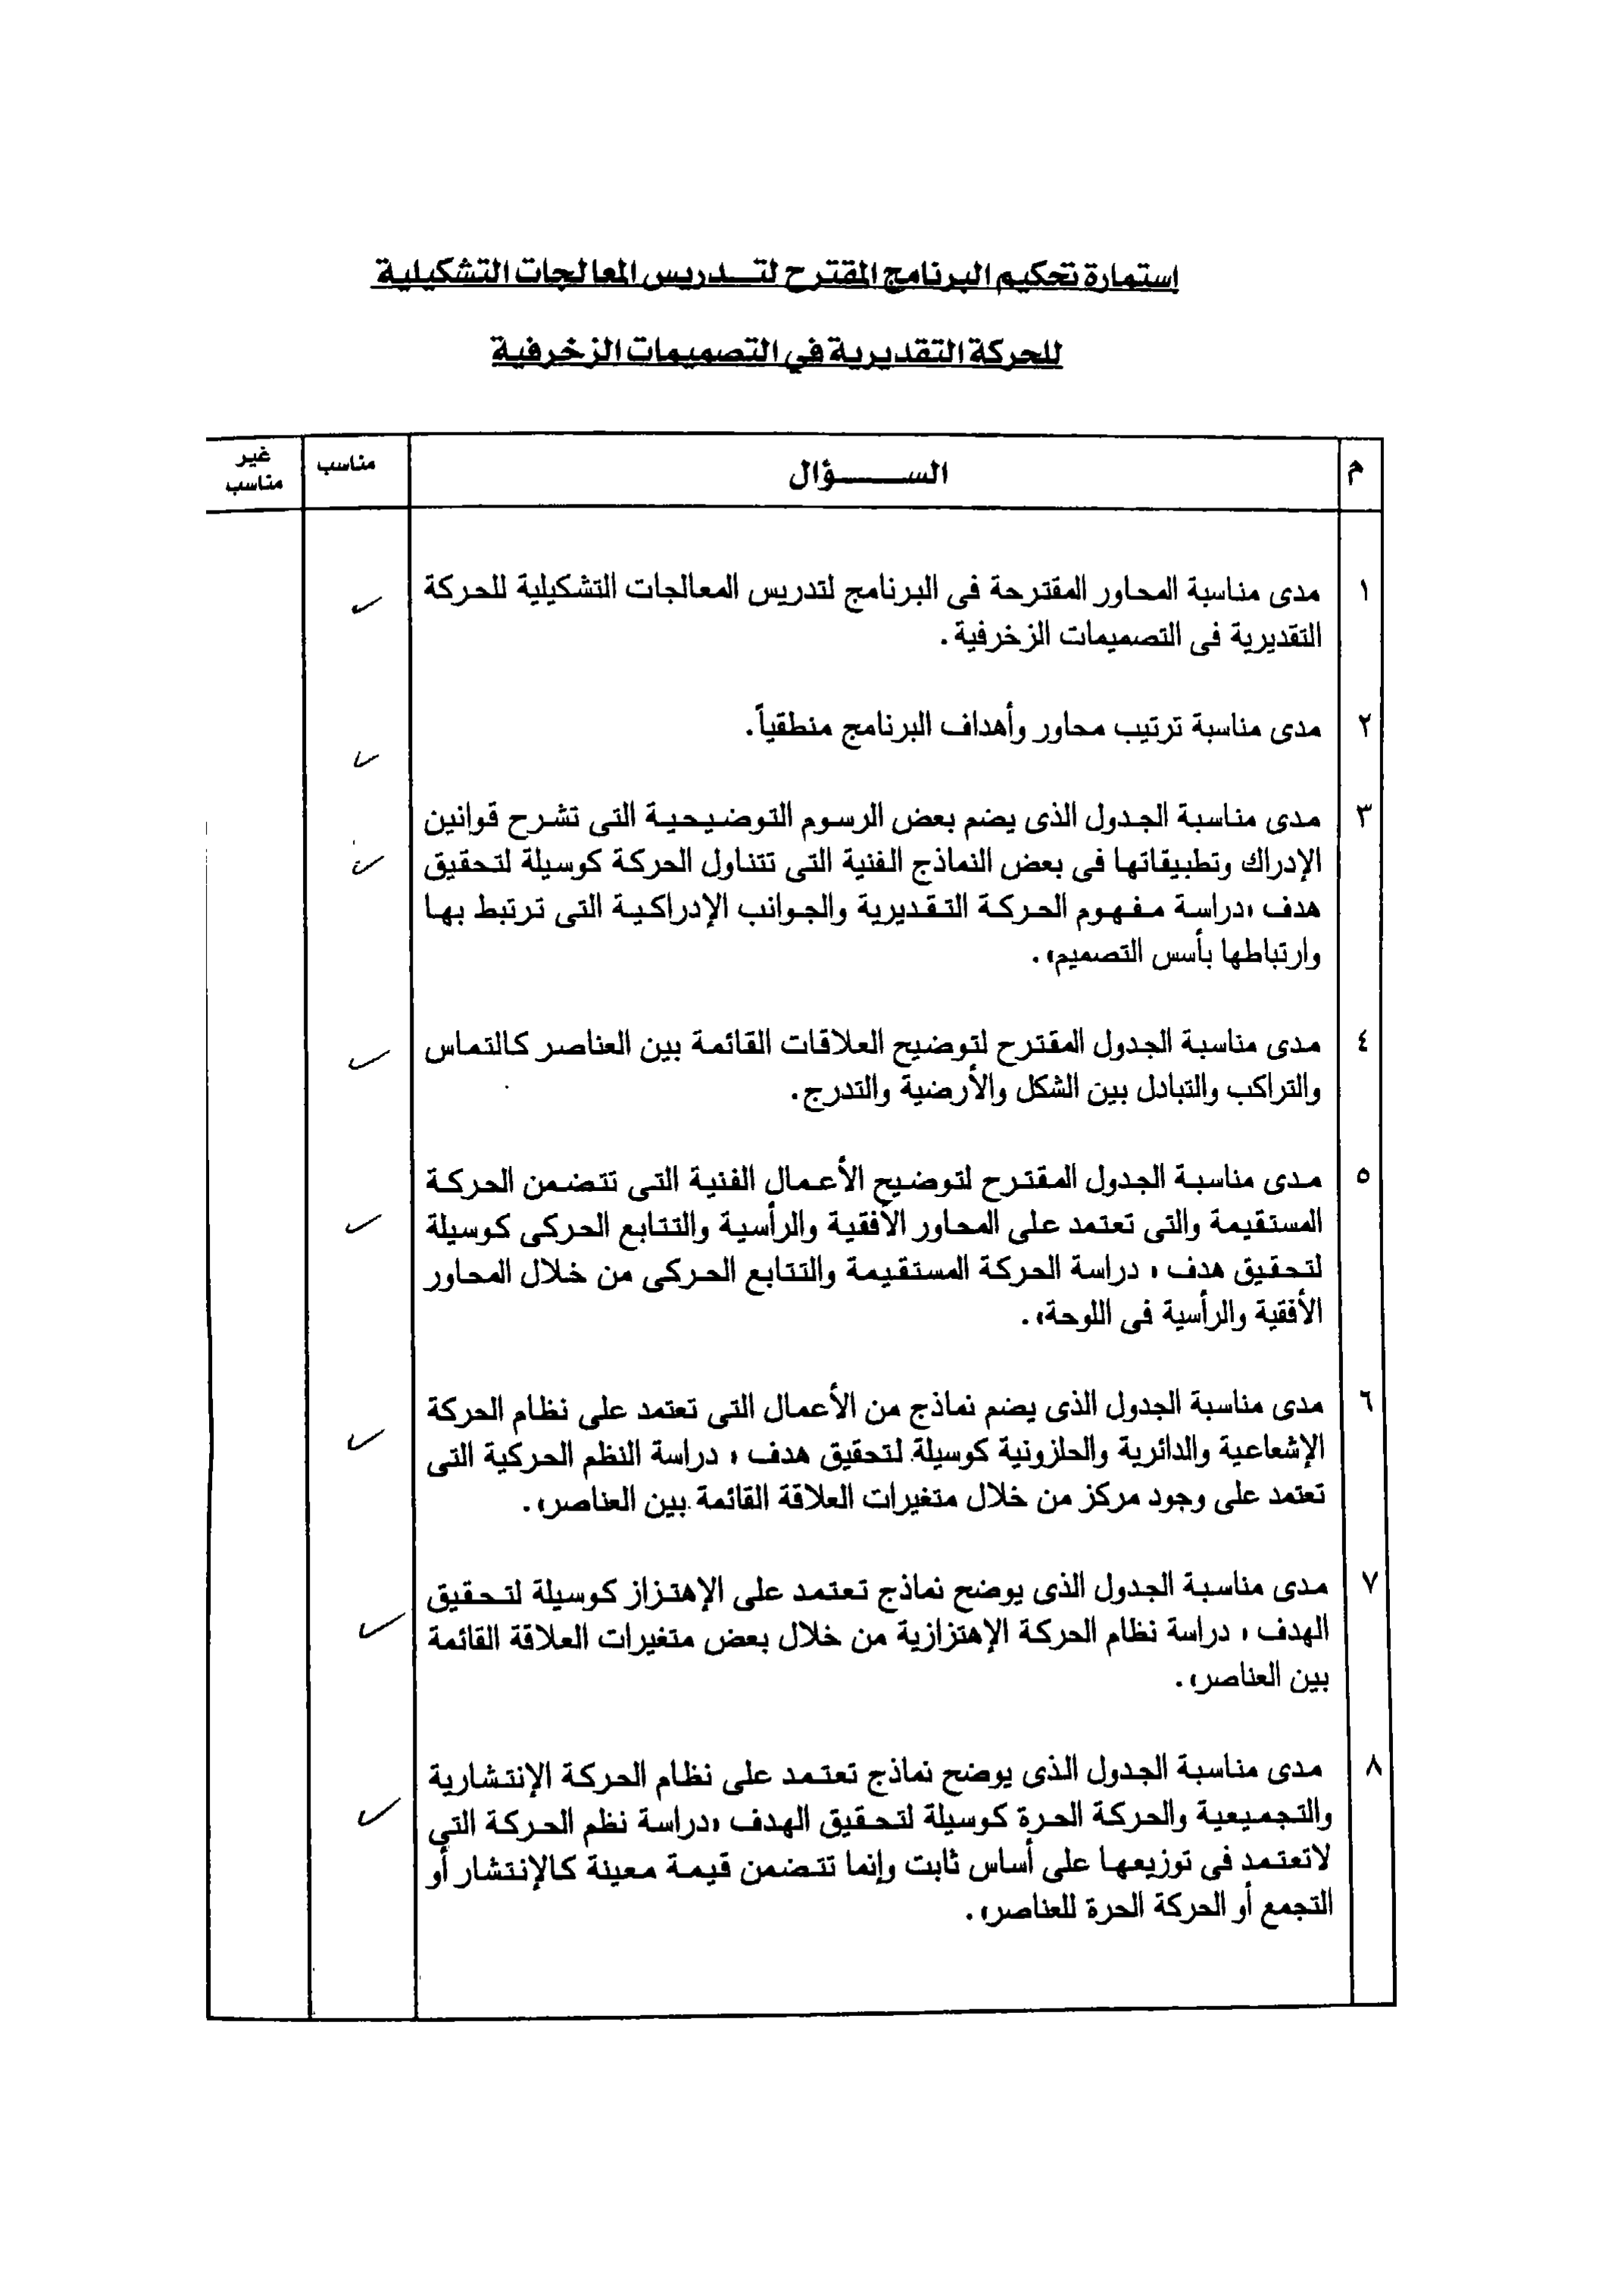 إستمارة تحكيم البرنامج المقترح لتـــدريس المعالجات التشكيلية
للحركة التقديرية في التصميمات الزخرفية
م السـؤال مناسب غير مناسب
١ مدى مناسبة المحاور المقترحة فى البرنامج لتدريس المعالجات التشكيلية للحركة ✓
التقديرية فى التصميمات الزخرفية.
٢ مدى مناسبة ترتيب محاور وأهداف البرنامج منطقياً. ✓
٣ مدى مناسبة الجدول الذى يضم بعض الرسوم التوضيحية التى تشرح قوانين
الإدراك وتطبيقاتها فى بعض النماذج الفنية التى تتناول الحركة كوسيلة لتحقيق ✓
هدف «دراسة مفهوم الحركة التقديرية والجوانب الإدراكية التى ترتبط بها
وارتباطها بأسس التصميم».
٤ مدى مناسبة الجدول المقترح لتوضيح العلاقات القائمة بين العناصر كالتماس ✓
والتراكب والتبادل بين الشكل والأرضية والتدرج.
٥ مدى مناسبة الجدول المقترح لتوضيح الأعمال الفنية التى تتضمن الحركة
المستقيمة والتى تعتمد على المحاور الأفقية والرأسية والتتابع الحركى كوسيلة ✓
لتحقيق هدف « دراسة الحركة المستقيمة والتتابع الحركى من خلال المحاور
الأفقية والرأسية فى اللوحة».
٦ مدى مناسبة الجدول الذى يضم نماذج من الأعمال التى تعتمد على نظام الحركة
الإشعاعية والدائرية والحلزونية كوسيلة لتحقيق هدف « دراسة النظم الحركية التى ✓
تعتمد على وجود مركز من خلال متغيرات العلاقة القائمة بين العناصر».
٧ مدى مناسبة الجدول الذى يوضح نماذج تعتمد على الإهتزاز كوسيلة لتحقيق
الهدف « دراسة نظام الحركة الإهتزازية من خلال بعض متغيرات العلاقة القائمة ✓
بين العناصر».
٨ مدى مناسبة الجدول الذى يوضح نماذج تعتمد على نظام الحركة الإنتشارية
والتجميعية والحركة الحرة كوسيلة لتحقيق الهدف «دراسة نظم الحركة التي ✓
لاتعتمد فى توزيعها على أساس ثابت وإنما تتضمن قيمة معينة كالإنتشار أو
التجمع أو الحركة الحرة للعناصر».